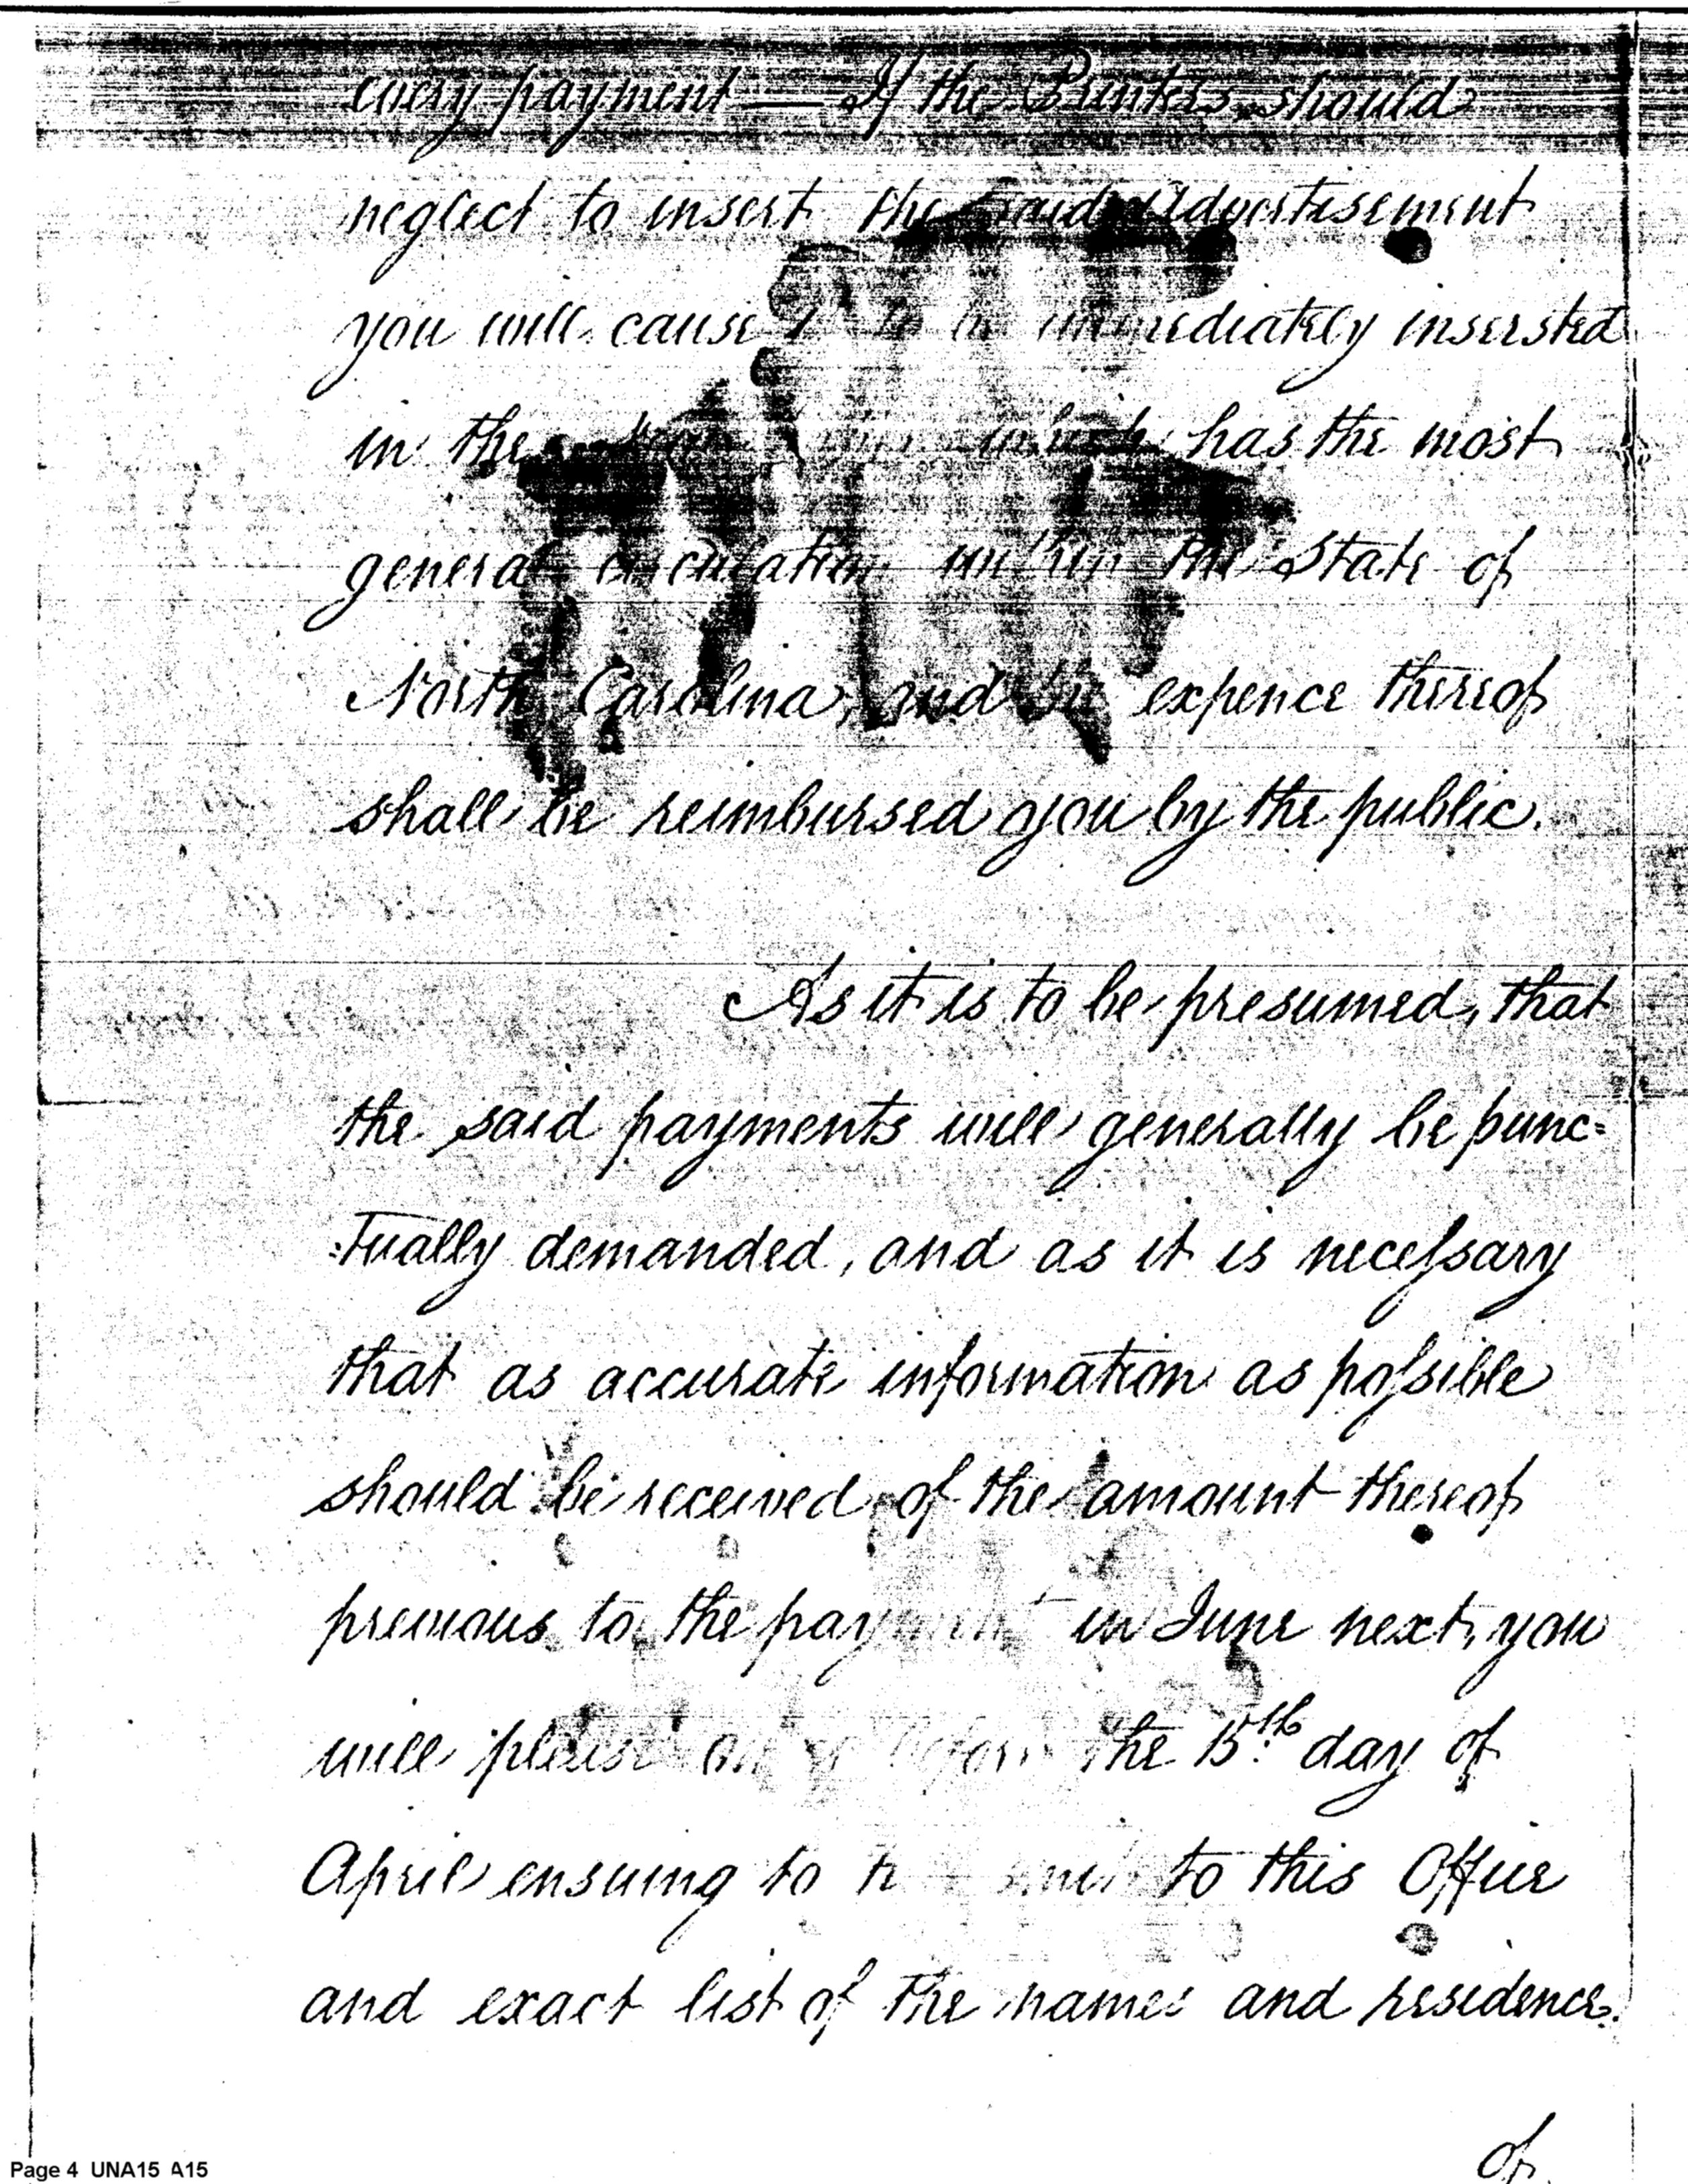 every payment — If the Printers should
neglect to insert the said Advertisement
you will cause it to be immediately insersted
in the which has the most
general circulation within the State of
North Carolina, and the expence thereof
shall be reimbursed you by the public.
As it is to be presumed, that
the said payments will generally be punc=
=tually demanded, and as it is necessary
that as accurate information as possible
should be received of the amount thereof
previous to the payment in June next, you
will please on or before the 15th day of
April ensuing to to this Office
and exact list of the names and residence.
of
Page 4 UNA15 A15